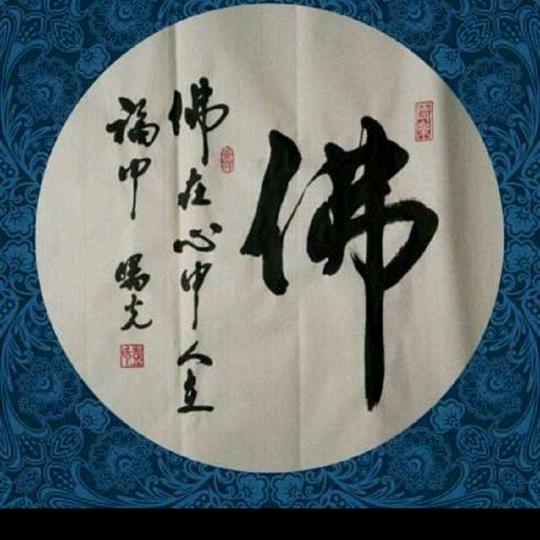 佛
佛在心中人在
福中
光